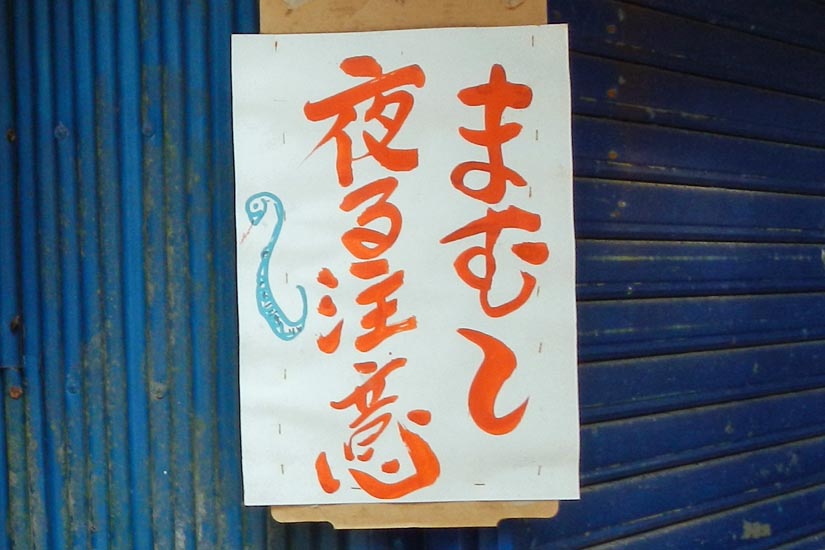 まむし
夜る注意